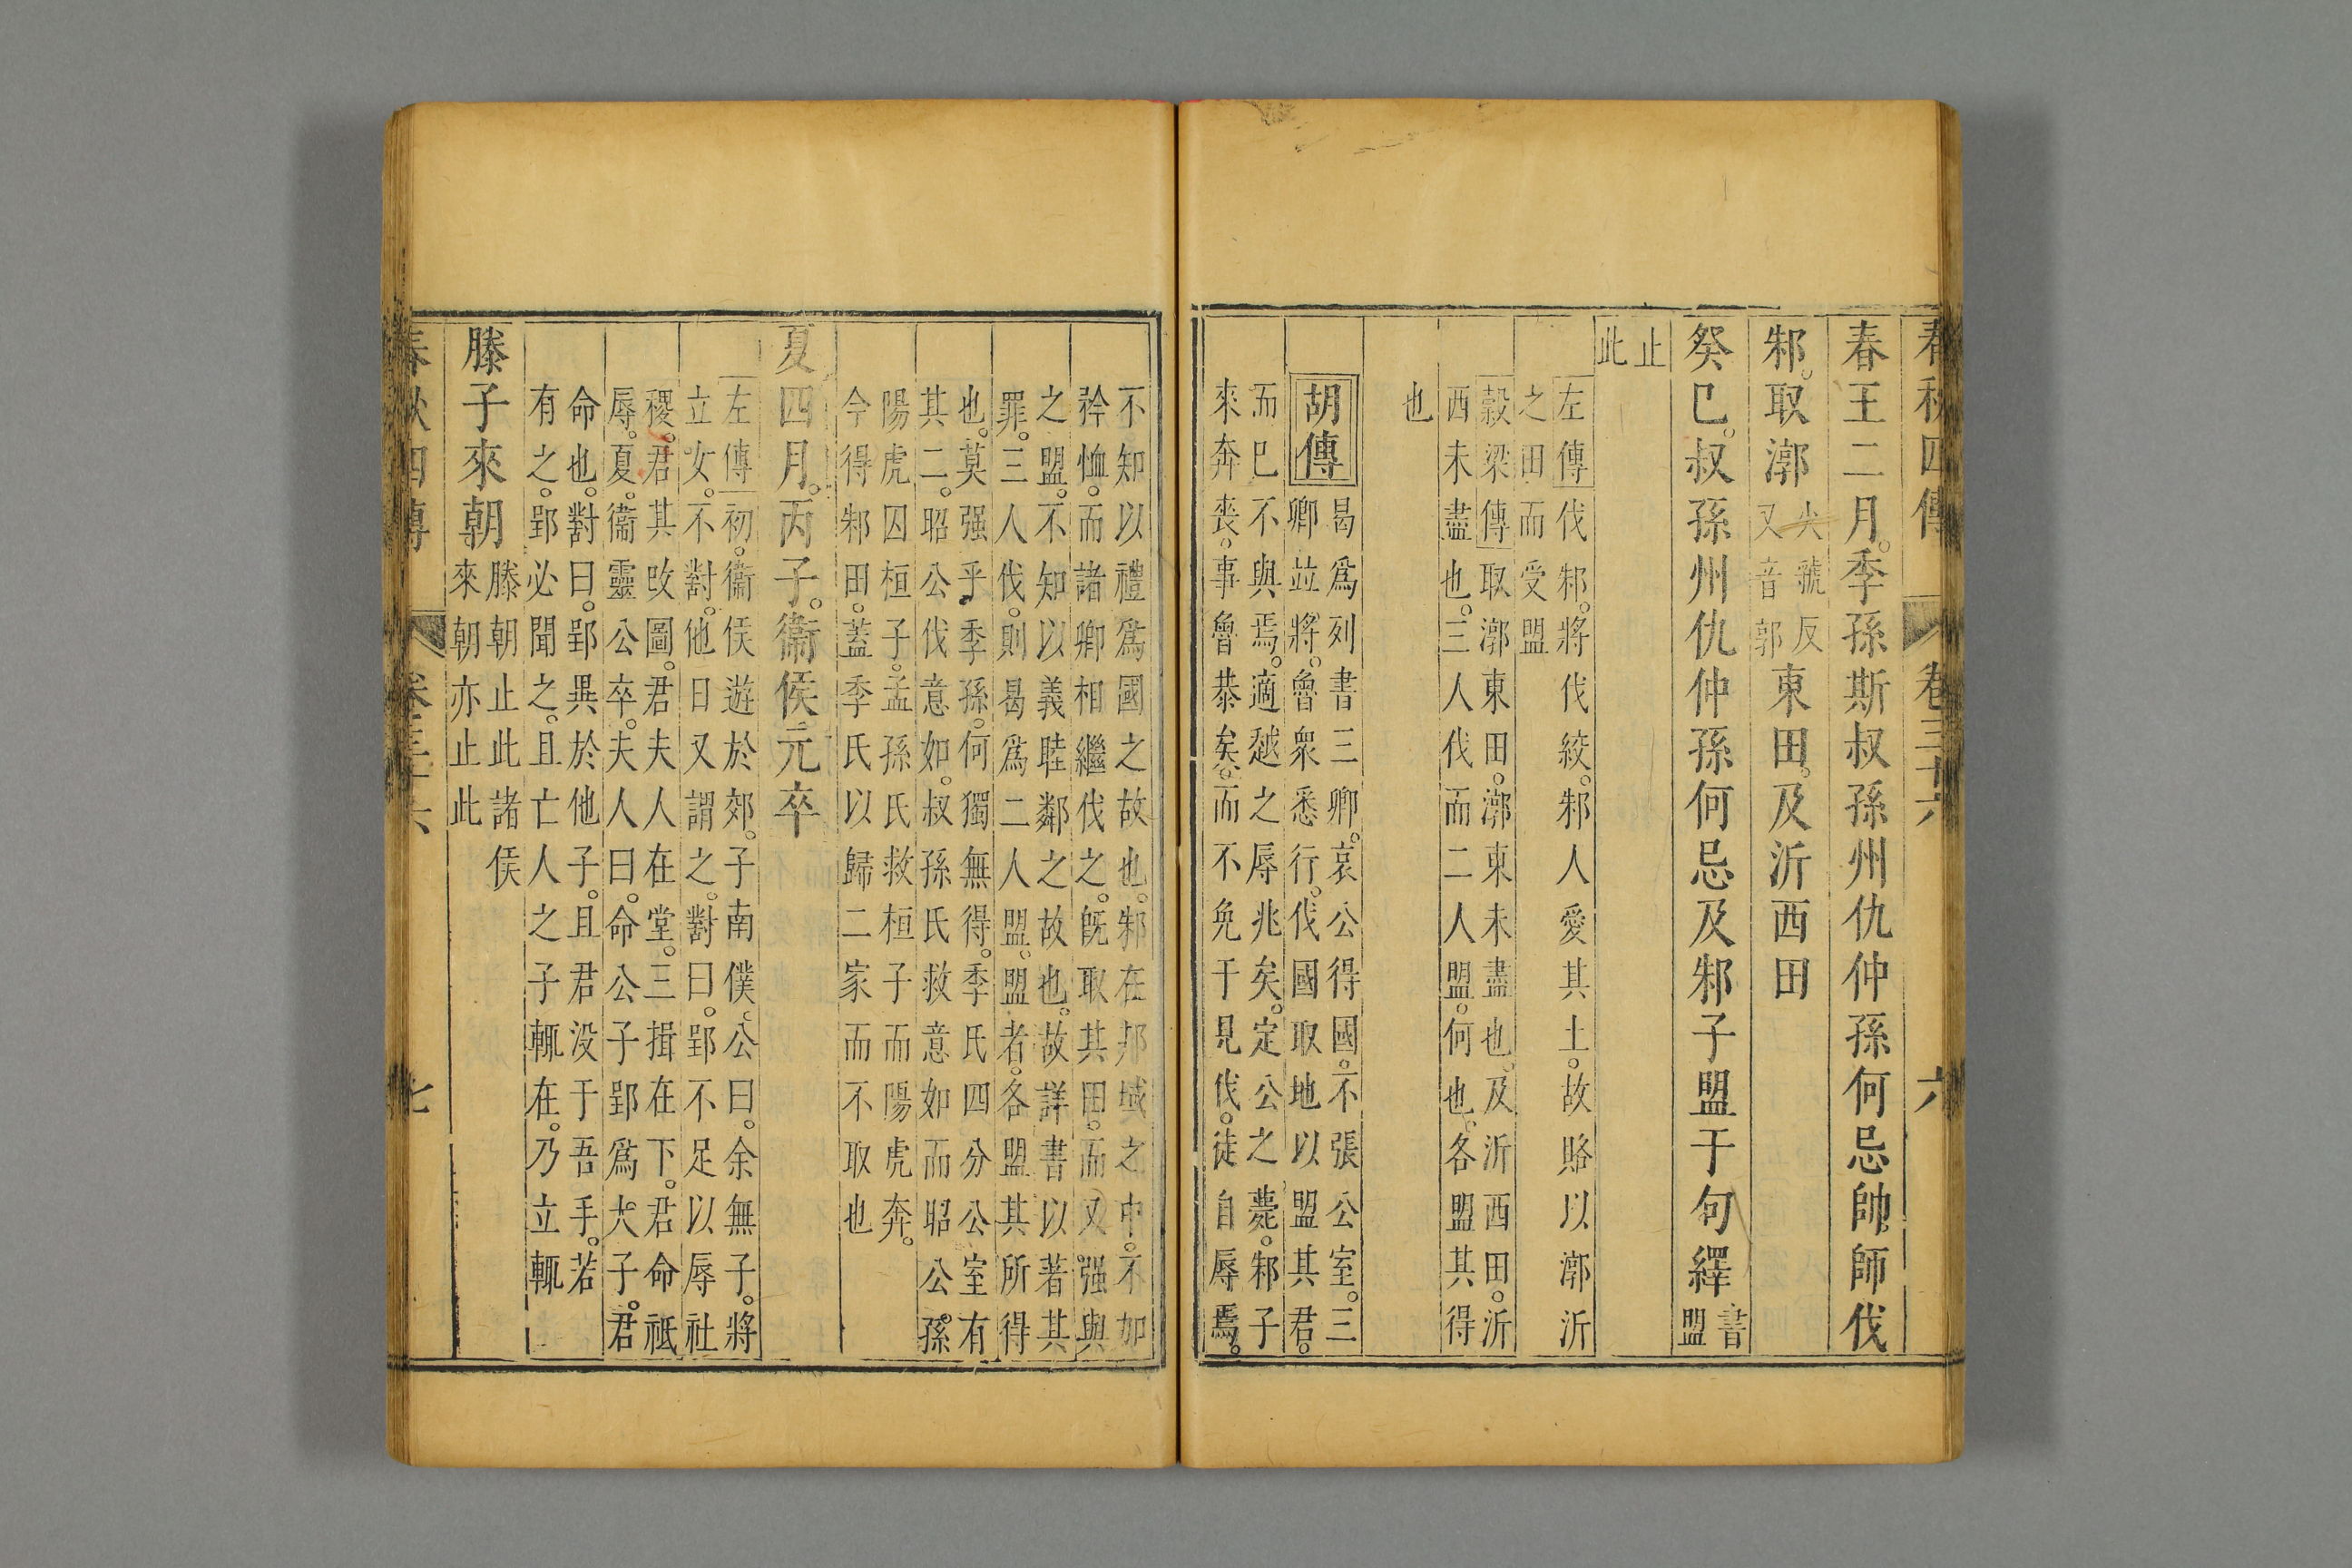 春秋四傳 卷三十六 六
春王二月。季孫斯叔孫州仇仲孫何忌帥師伐
邾。取漷火虢反又音郭東田。及沂西田
癸巳。叔孫州仇仲孫何忌及邾子盟于句繹書盟
止此
左傳伐邾。將伐絞。邾人愛其土。故賂以漷沂
之田而受盟
穀梁傳取漷東田。漷東未盡也。及沂西田。沂
西未盡也。三人伐而二人盟。何也。各盟其得
也
胡傳曷爲列書三卿。哀公得國。不張公室。三
卿竝將。魯衆悉行。伐國取地以盟其君。
而已不與焉。適越之辱兆矣。定公之薨。邾子
來奔喪。事魯恭矣。而不免于見伐。徒自辱焉。
不知以禮爲國之故也。邾在邦域之中。不加
矜恤。而諸卿相繼伐之。旣取其田。而又强與
之盟。不知以義睦鄰之故也。故詳書以著其
罪。三人伐。則曷爲二人盟。盟者。各盟其所得
也。莫强乎季孫。何獨無得。季氏四分公室有
其二。昭公伐意如。叔孫氏救意如而昭公。孫
陽虎囚桓子。孟孫氏救桓子而陽虎奔。
今得邾田。蓋季氏以歸二家而不取也
夏四月。丙子。衞侯元卒
左傳初。衞侯遊於郊。子南僕。公曰。余無子。將
立女。不對。他日又謂之。對曰。郢不足以辱社
稷。君其改圖。君夫人在堂。三揖在下。君命祗
辱。夏。衞靈公卒。夫人曰。命公子郢爲大子。君
命也。對曰。郢異於他子。且君没于吾手。若
有之。郢必聞之。且亡人之子輒在。乃立輒
滕子來朝滕朝止此諸侯
來朝亦止此
春秋四傳 卷三十六 七